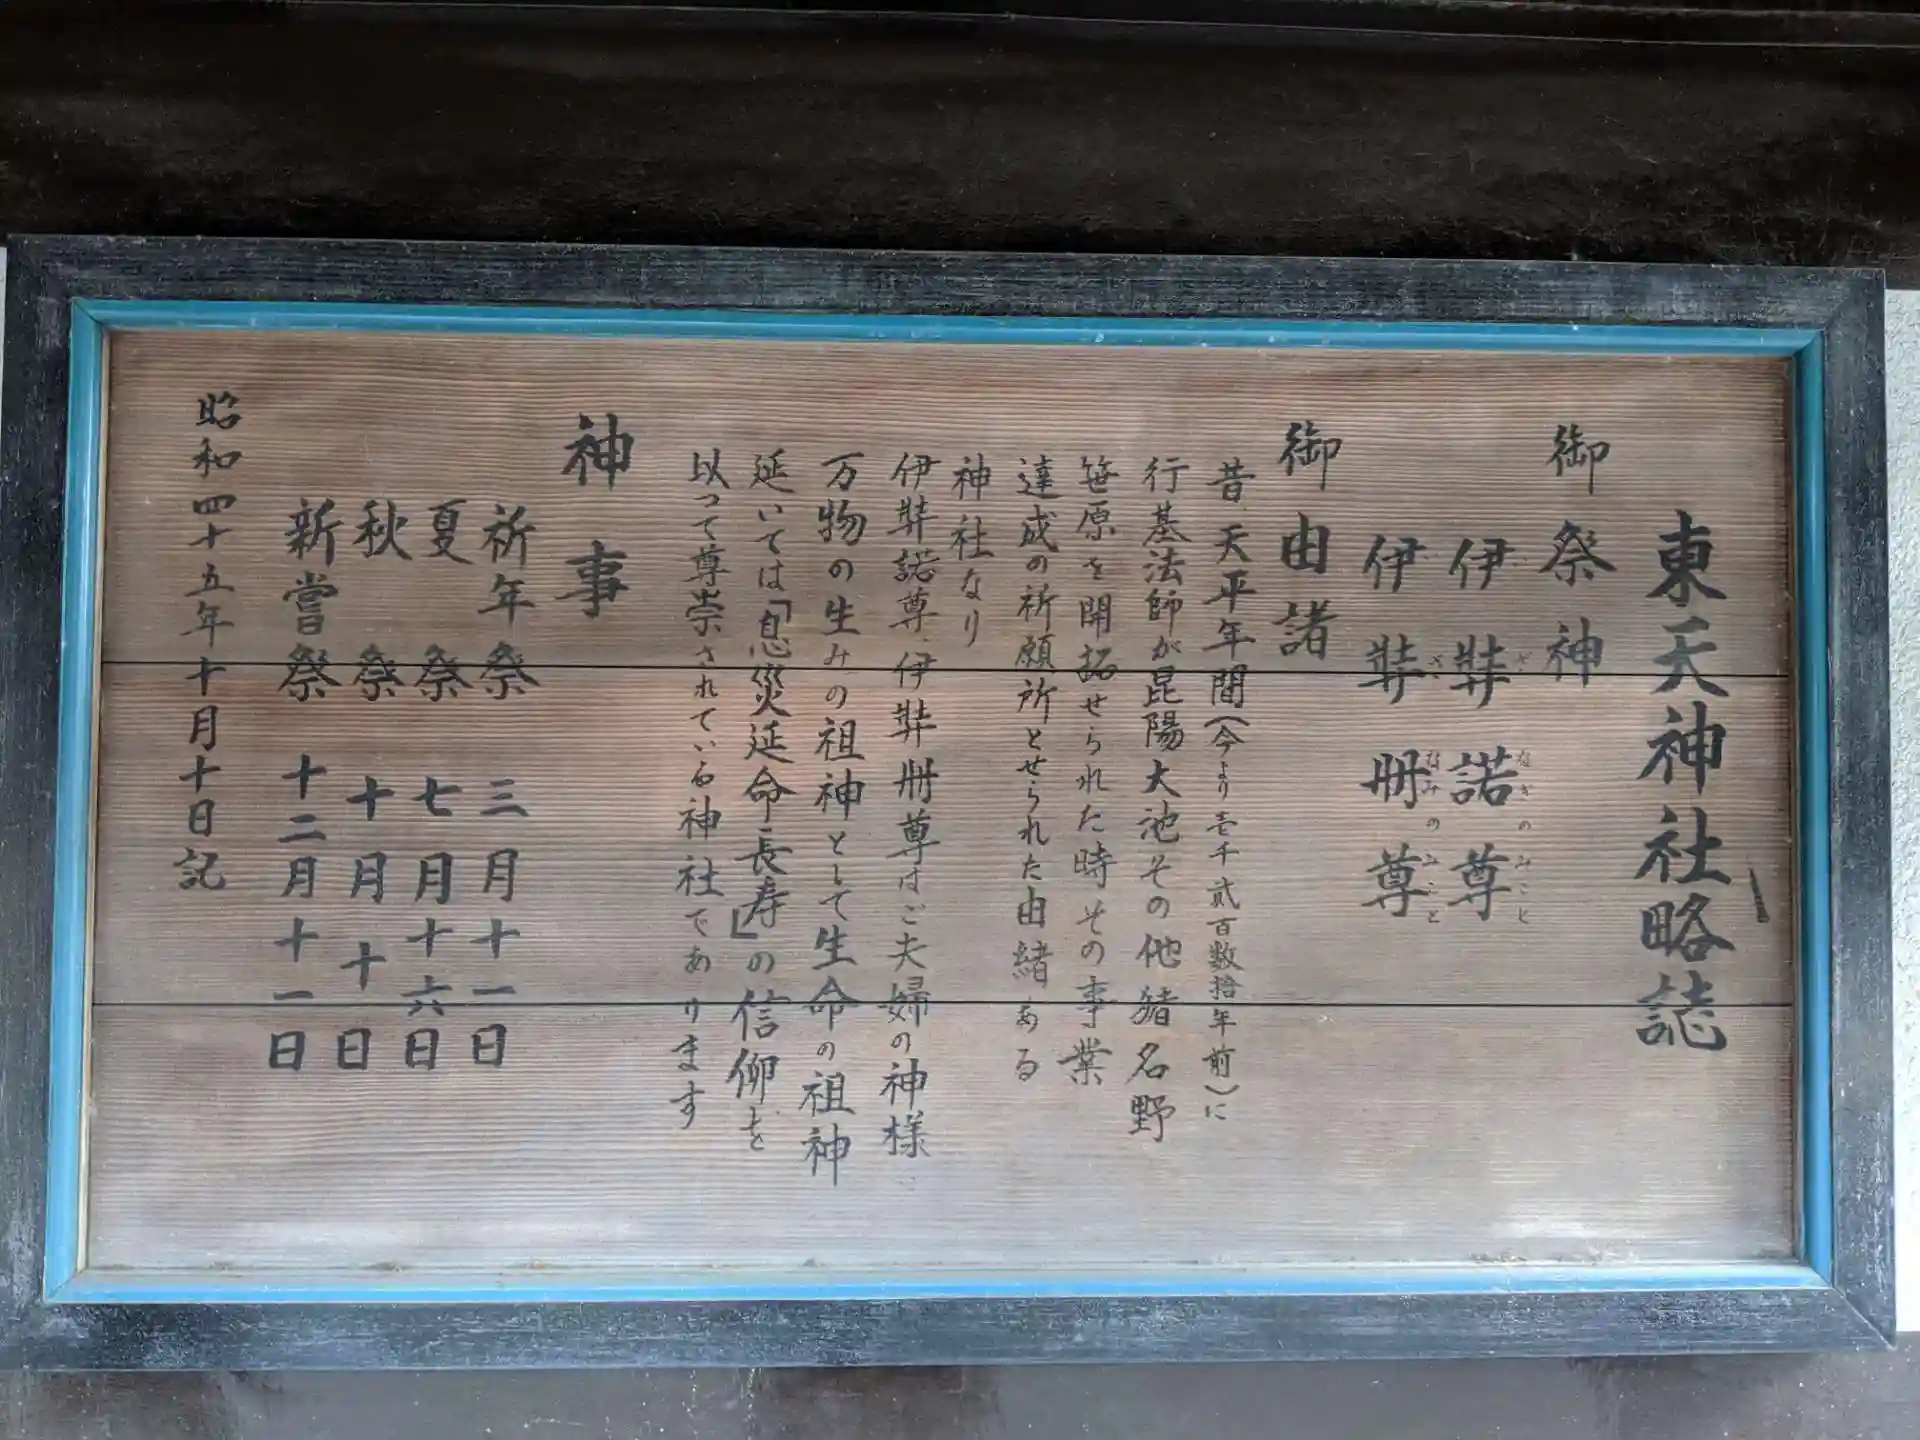 東天神社略誌
御祭神
伊弉諾尊
いざなぎのみこと
伊弉冊尊
いざなみのみこと
御由諸
昔天平年間(今より壱千貳百数拾年前)に
行基法師が昆陽大池その他猪名野
笹原を開拓せられた時その事業
達成の祈願所とせられた由緒ある
神社なり
伊弉諾尊、伊弉冊尊はご夫婦の神様
万物の生みの祖神として生命の祖神
延いては「息災延命長寿」の信仰を
以って尊崇されている神社であります
神事
祈年祭 三月十一日
夏祭 七月十六日
秋祭 十月十日
新嘗祭 十二月十一日
昭和四十五年十月十日記